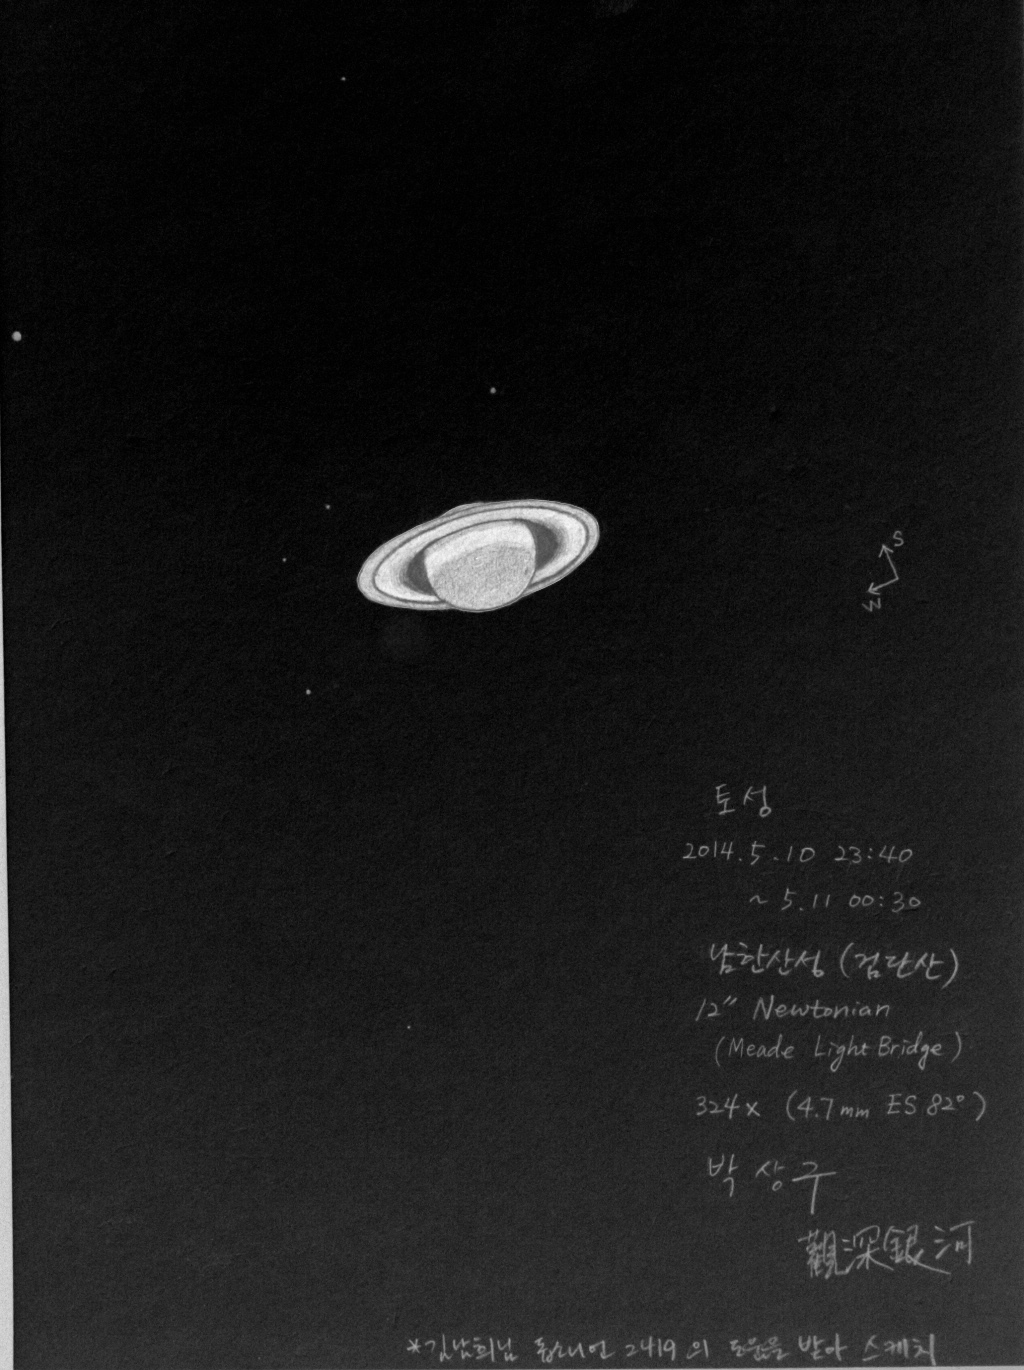 S
W
토성
2014.5.10 23:40
~ 5.11 00:30
남한산성 (검단산)
12" Newtonian
(Meade Light Bridge)
324x (4.7mm ES 82°)
박상구
觀深銀河
*김남희님 돕소니언 2419의 도움을 받아 스케치